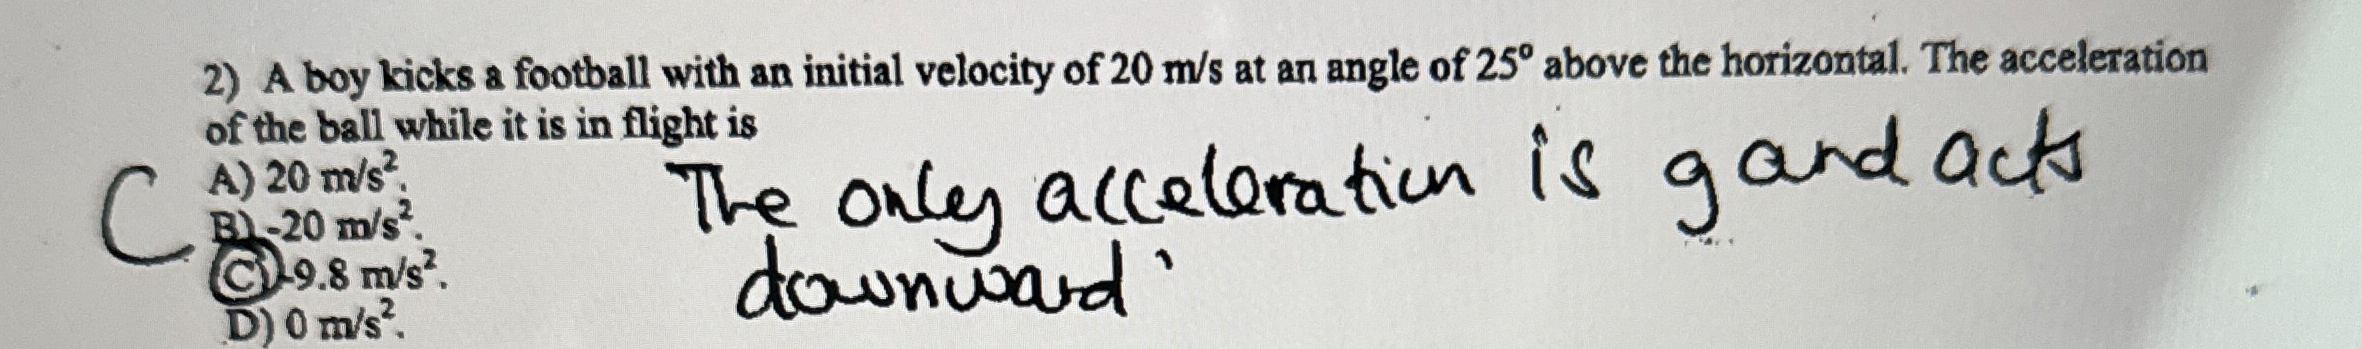 2) A boy kicks a football with an initial velocity of 20 m/s at an angle of 25° above the horizontal. The acceleration
of the ball while it is in flight is
A) 20 m/s².
B) -20 m/s².
C) -9.8 m/s².
D) 0 m/s².
C
The only acceleration is g and acts
downward